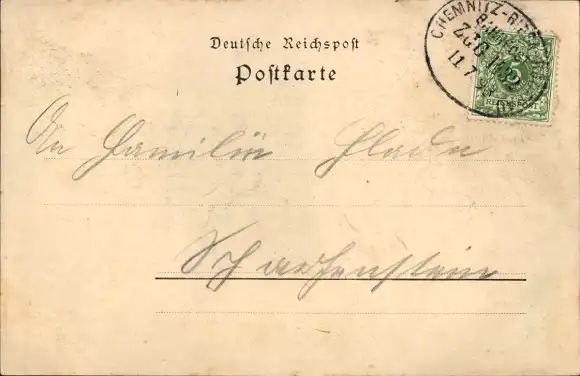 Deutsche Reichspost
Postkarte
CHEMNITZ-
ZUG
11 7
An Familie
Scharfenstein